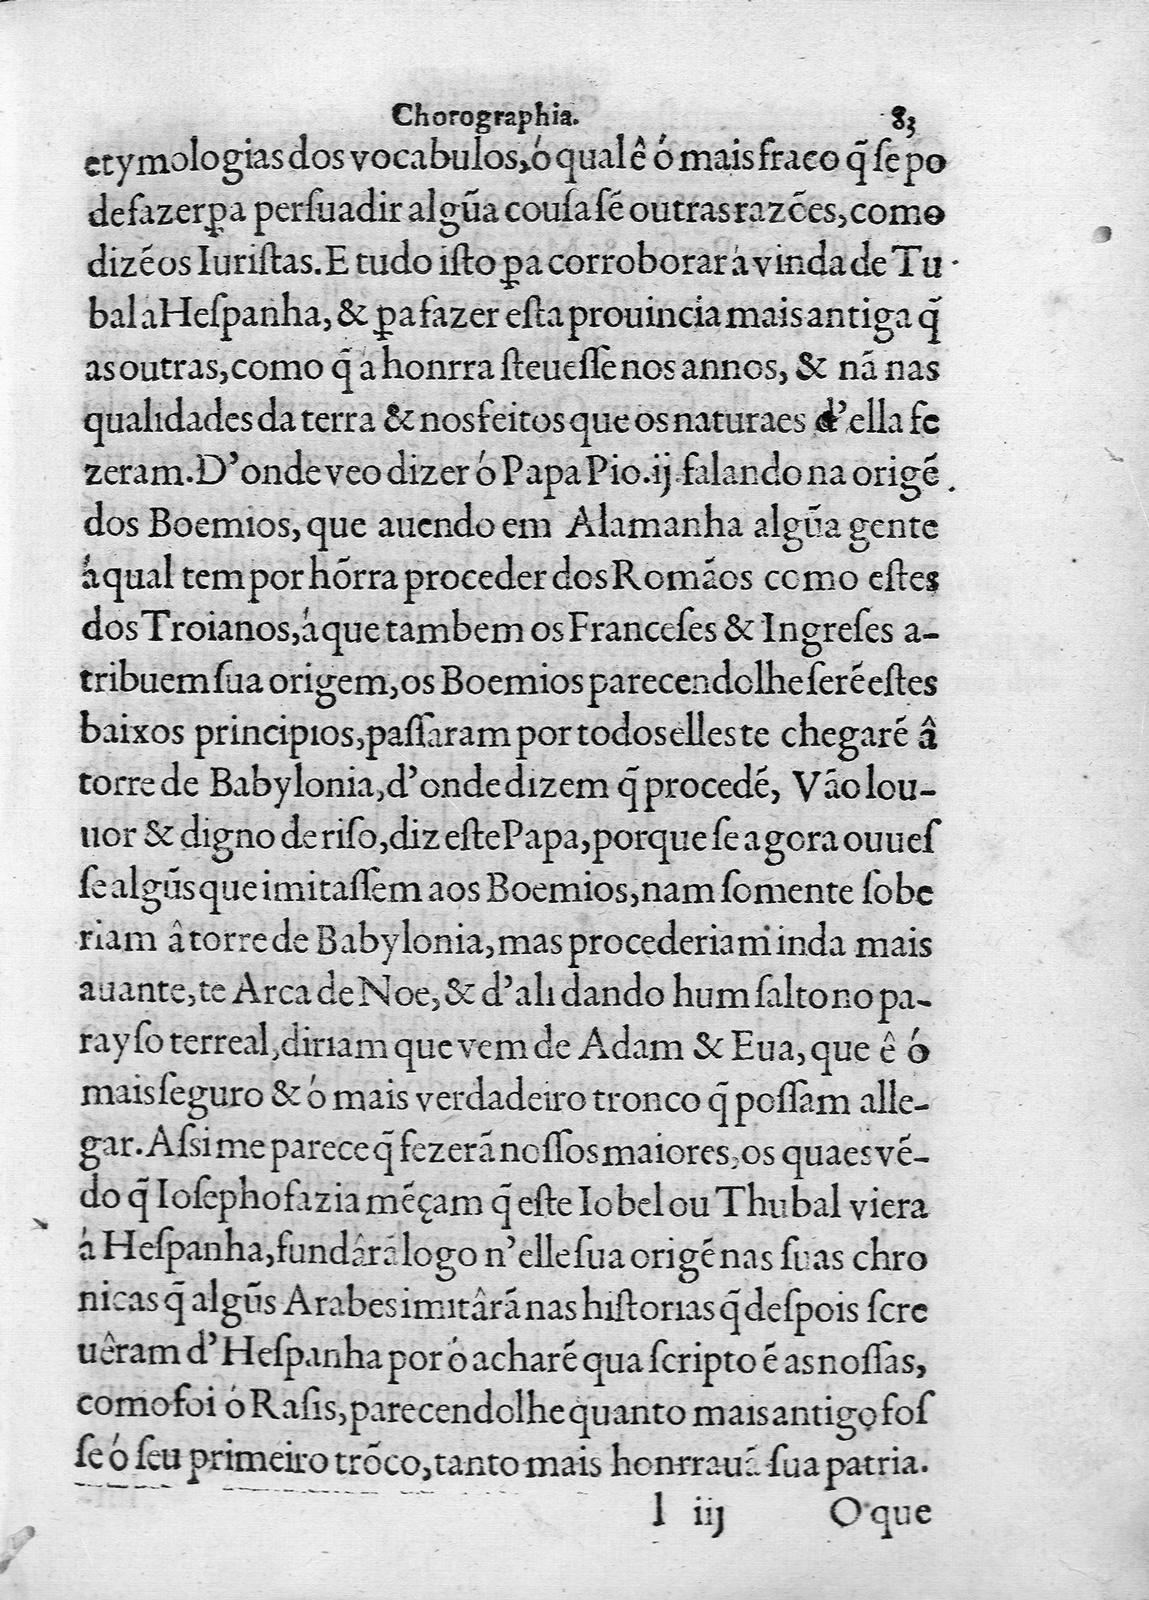 Chorographia. 83
etymologias dos vocabulos, ó qual ê ó mais fraco q̃ ſe po
de fazer ꝑa perſuadir algũa couſa ſẽ outras razões, como
dizẽ os Iuriſtas. E tudo iſto ꝑa corroborar á vinda de Tu
bal á Heſpanha, & ꝑa fazer eſta prouincia mais antiga q̃
as outras, como q̃ a honrra ſteueſſe nos annos, & nã nas
qualidades da terra & nos feitos que os naturaes d’ella fe
zeram. D’onde veo dizer ó Papa Pio .ij. falando na origẽ
dos Boemios, que auendo em Alamanha algũa gente
á qual tem por hõrra proceder dos Romãos como eſtes
dos Troianos, á que tambem os Franceſes & Ingreſes a-
tribuem ſua origem, os Boemios parecendolhe ſerẽ eſtes
baixos principios, paſſaram por todos elles te chegarẽ â
torre de Babylonia, d’onde dizem q̃ procedẽ, Vão lou-
uor & digno de riſo, diz eſte Papa, porque ſe agora ouueſ
ſe algũs que imitaſſem aos Boemios, nam ſomente ſobe
riam â torre de Babylonia, mas procederiam inda mais
auante, te Arca de Noe, & d’ali dando hum ſalto no pa-
rayſo terreal, diriam que vem de Adam & Eua, que ê ó
mais ſeguro & ó mais verdadeiro tronco q̃ poſſam alle-
gar. Aſsi me parece q̃ fezerã noſſos maiores, os quaes vẽ-
do q̃ Ioſepho fazia mẽçam q̃ eſte Iobel ou Thubal viera
á Heſpanha, fundârã logo n’elle ſua origẽ nas ſuas chro
nicas q̃ algũs Arabes imitârã nas hiſtorias q̃ deſpois ſcre
uêram d’Heſpanha por ó acharẽ qua ſcripto ẽ as noſſas,
como foi ó Raſis, parecendolhe quanto mais antigo foſ
ſe ó ſeu primeiro trõco, tanto mais honrrauã ſua patria.
l iij O que